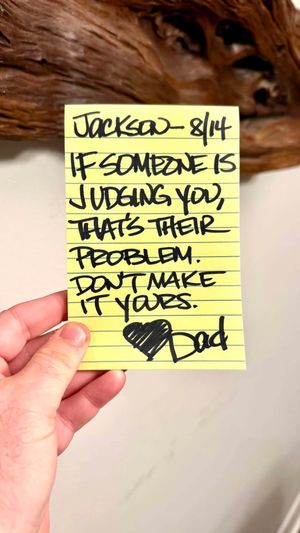 JACKSON - 8/14
IF SOMEONE IS
JUDGING YOU,
THAT'S THEIR
PROBLEM.
DON'T MAKE
IT YOURS.
Dad